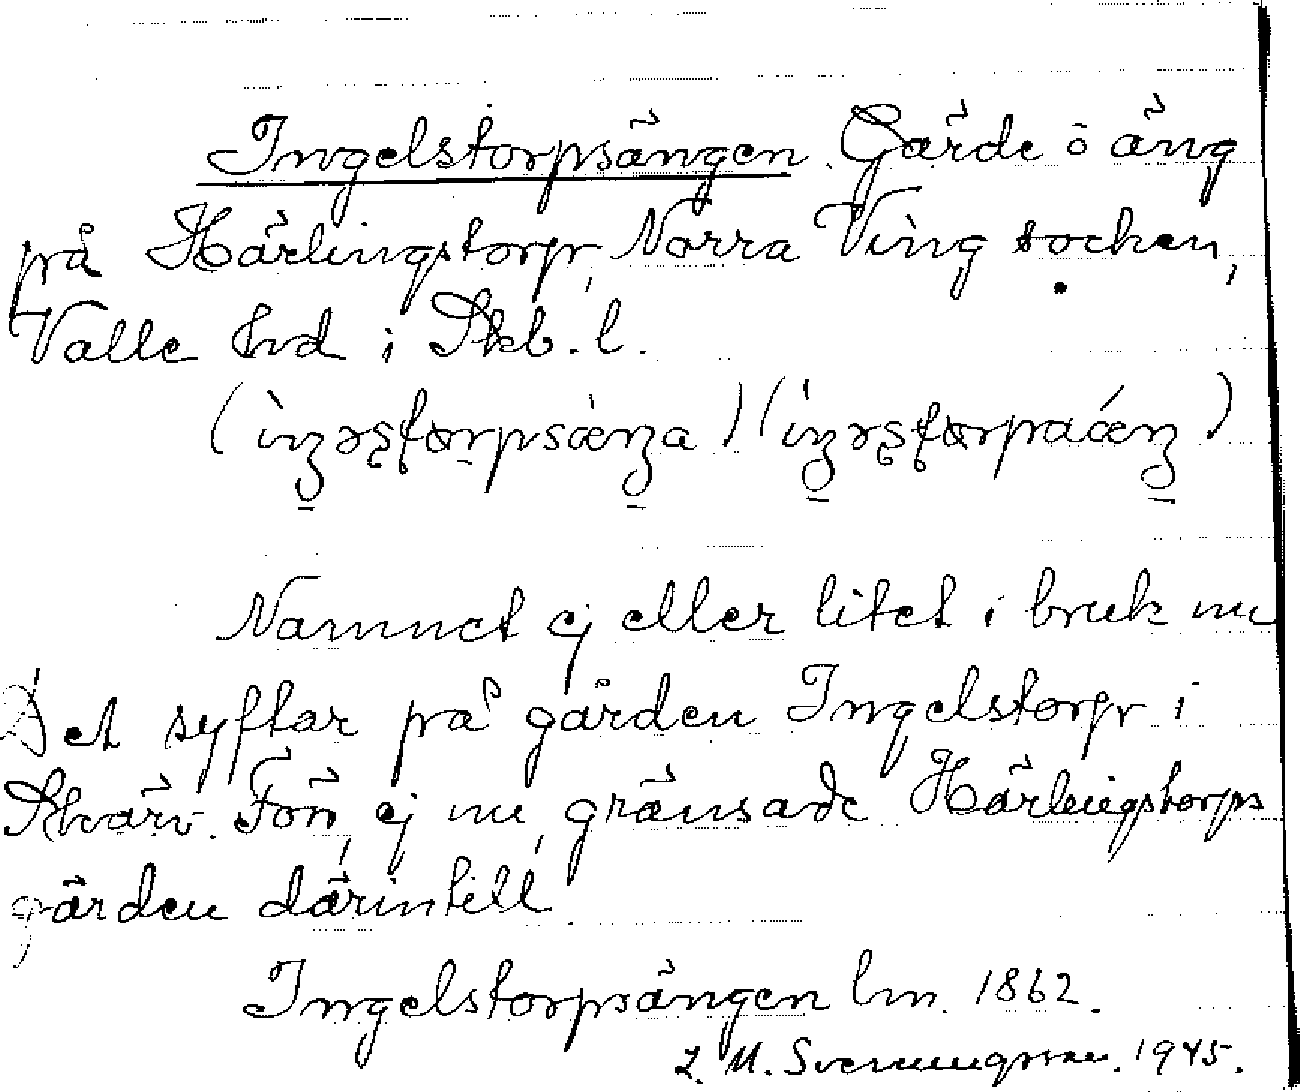 Ingelstorpsängen. Gärde o äng
på Härlingstorp, Norra Ving socken,
Valle hrd i Skb. l.
Namnet ej eller litet i bruk nu
Det syftar på gården Ingelstorp i
Skärv. Förr, ej nu, gränsade Härlingstorps
gärden därintill.
Ingelstorpsängen lm. 1862.
L. M. Svenungsson. 1945.